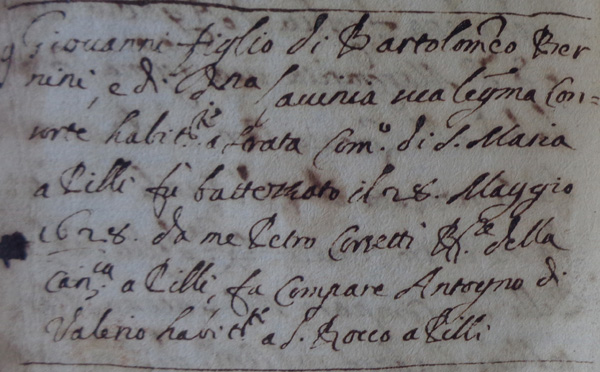 Giovanni figlio di Bartolomeo Ber
nini, e di Dna Lavinia sua legma Con=
sorte habitti a Grata Como. di S. Maria
a Pilli fu battezzato il 28. Maggio
1628. da me Petro Corsetti Re. della
Canca a Pilli, fu Compare Antogno di
Valerio habitte a S. Rocco a Pilli